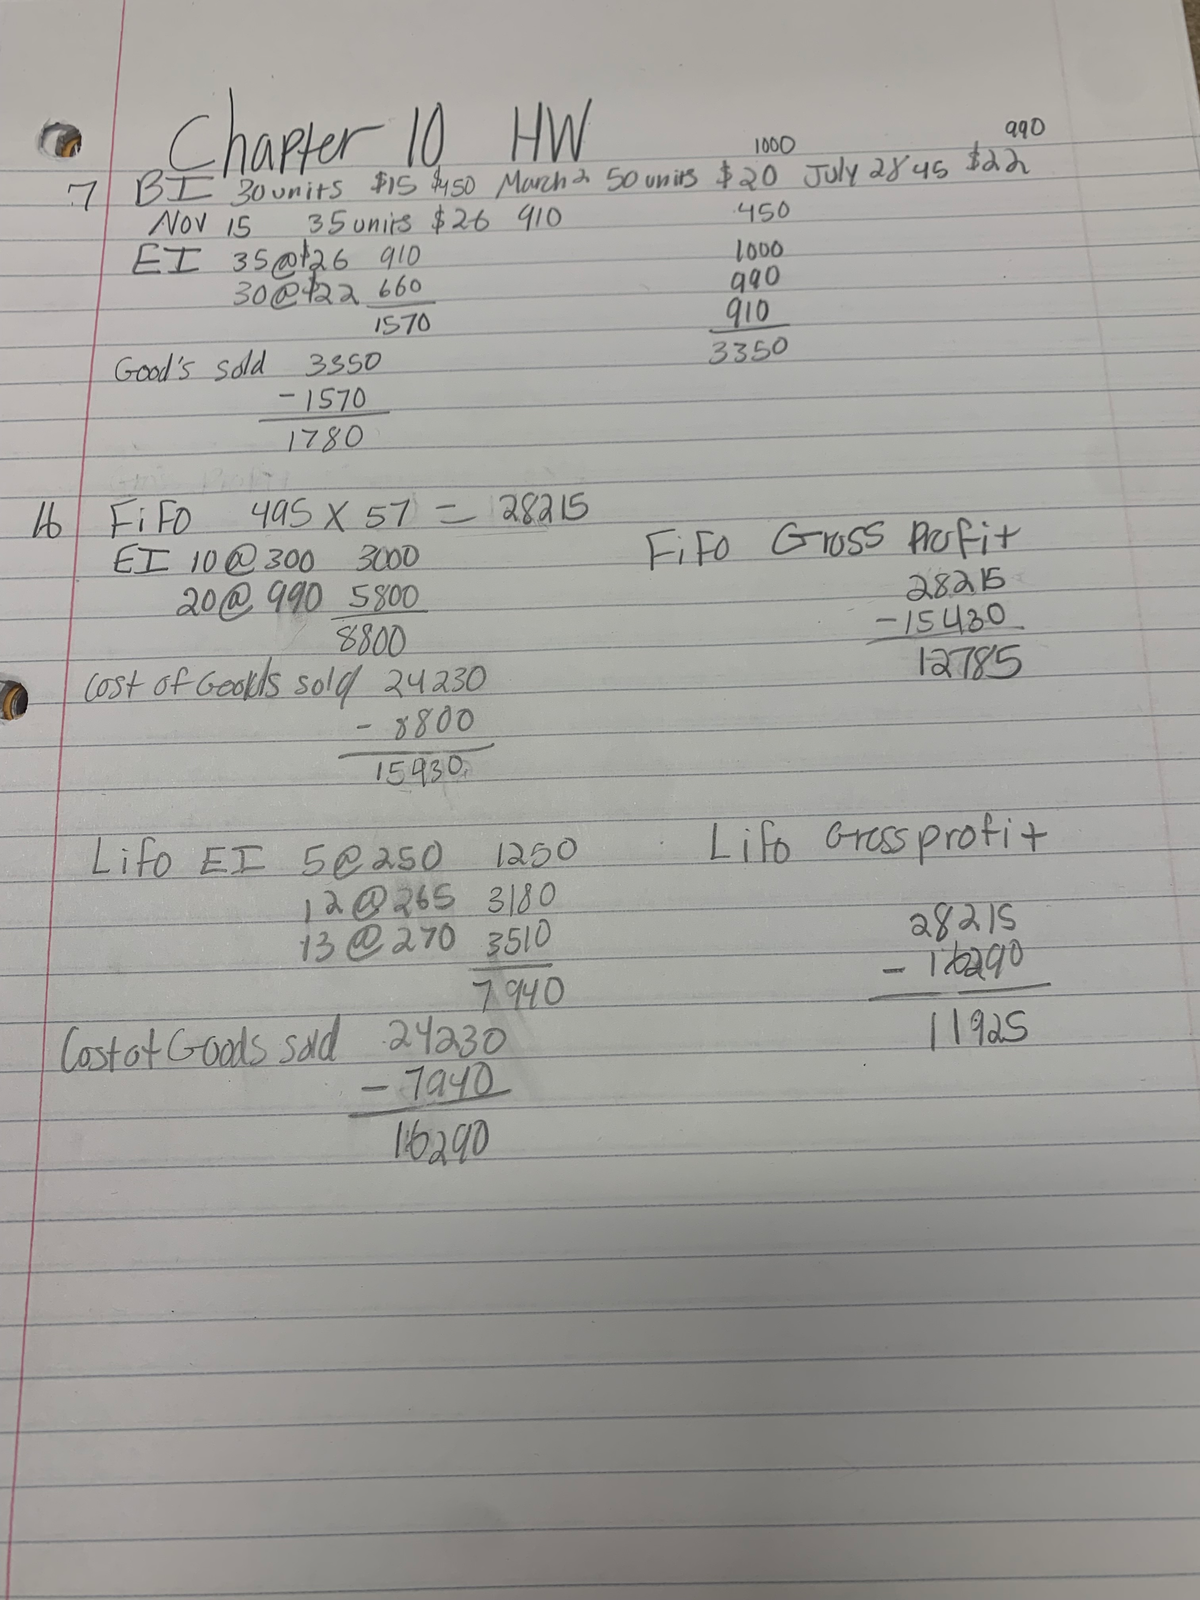 Chapter 10 HW
1000 990
7 BI 30 units $15 $450 March 2 50 units $20 July 28 45 $22
Nov 15 35 units $26 910 450
EI 35@$26 910 1000
30@$22 660 990
1570 910
3350
Good's sold 3350
- 1570
1780
16 FiFO 495 X 57 = 28215
EI 10@300 3000
20@ 990 5800
8800
Cost of Goods sold 24230
- 8800
15930
FiFO Gross Profit
28215
-15430
12785
Lifo EI 5@250 1250
12@265 3180
13@270 3510
7940
Cost of Goods sold 24230
- 7940
16290
Lifo Gross profit
28215
- 16290
11925